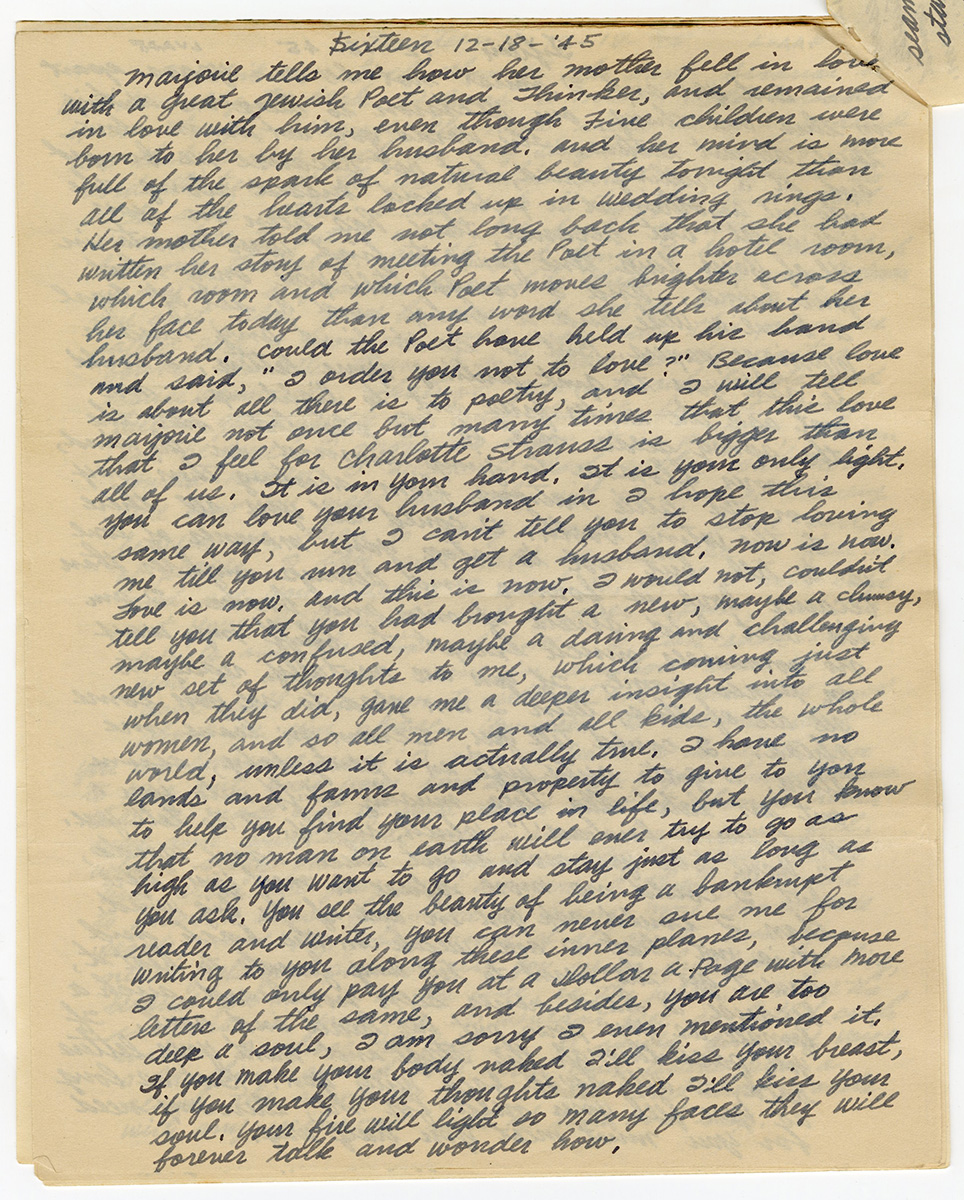 Sixteen 12-18-'45
Marjorie tells me how her mother fell in love
with a great Jewish Poet and Thinker, and remained
in love with him, even though Five children were
born to her by her husband. and her mind is more
full of the spark of natural beauty tonight than
all of the hearts locked up in wedding rings.
Her mother told me not long back that she had
written her story of meeting the Poet in a hotel room,
which room and which Poet moves brighter across
her face today than any word she tells about her
husband. Could the Poet have held up his hand
and said, "I order you not to love?" Because love
is about all there is to poetry, and I will tell
Marjorie not once but many times that this love
that I feel for Charlotte Strauss is bigger than
all of us. It is in your hand. It is your only light.
You can love your husband in I hope this
same way, but I can't tell you to stop loving
me till you run and get a husband. Now is now.
Love is now. And this is now. I would not, couldn't
tell you that you had brought a new, maybe a clumsy,
maybe a confused, maybe a daring and challenging
new set of thoughts to me, which coming just
when they did, gave me a deeper insight into all
women, and so all men and all kids, the whole
world, unless it is actually true. I have no
lands and farms and property to give to you
to help you find your place in life, but you know
that no man on earth will ever try to go as
high as you want to go and stay just as long as
you ask. You see the beauty of being a bankrupt
reader and writer, you can never sue me for
writing to you along these inner planes, because
I could only pay you at a Dollar a Page with more
letters of the same, and besides, you are too
deep a soul, I am sorry I even mentioned it.
If you make your body naked I'll kiss your breast,
if you make your thoughts naked I'll kiss your
soul. Your fire will light so many faces they will
forever talk and wonder how.